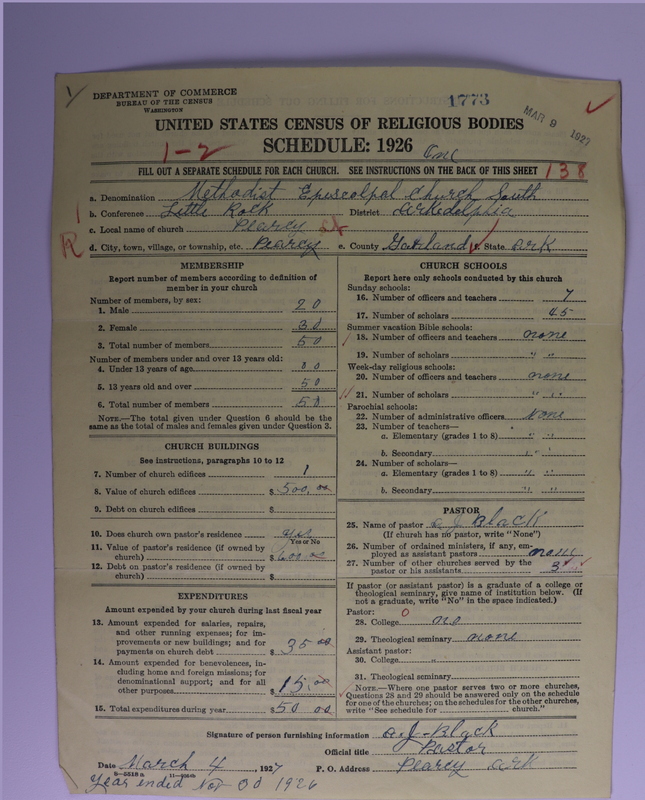 DEPARTMENT OF COMMERCE
BUREAU OF THE CENSUS
WASHINGTON
1773
MAR 9 1927
UNITED STATES CENSUS OF RELIGIOUS BODIES
SCHEDULE: 1926
1-2
One
FILL OUT A SEPARATE SCHEDULE FOR EACH CHURCH. SEE INSTRUCTIONS ON THE BACK OF THIS SHEET
138
a. Denomination Methodist Episcolpal Church, South
b. Conference Little Rock District Arkidolphia
c. Local name of church Pearcy
R
d. City, town, village, or township, etc. Pearcy e. County Garland f. State Ark
MEMBERSHIP
Report number of members according to definition of
member in your church
Number of members, by sex:
1. Male 20
2. Female 30
3. Total number of members 50
Number of members under and over 13 years old:
4. Under 13 years of age 00
5. 13 years old and over 50
6. Total number of members 50
NOTE.—The total given under Question 6 should be the
same as the total of males and females given under Question 3.
CHURCH BUILDINGS
See instructions, paragraphs 10 to 12
7. Number of church edifices 1
8. Value of church edifices $ 500.00
9. Debt on church edifices $
10. Does church own pastor's residence yes
Yes or No
11. Value of pastor's residence (if owned by
church) $ 600.00
12. Debt on pastor's residence (if owned by
church) $
EXPENDITURES
Amount expended by your church during last fiscal year
13. Amount expended for salaries, repairs,
and other running expenses; for im-
provements or new buildings; and for
payments on church debt $ 35 00
14. Amount expended for benevolences, in-
cluding home and foreign missions; for
denominational support; and for all
other purposes $ 15.00
15. Total expenditures during year $ 50 00
CHURCH SCHOOLS
Report here only schools conducted by this church
Sunday schools:
16. Number of officers and teachers 7
17. Number of scholars 45
Summer vacation Bible schools:
18. Number of officers and teachers none
19. Number of scholars " "
Week-day religious schools:
20. Number of officers and teachers none
21. Number of scholars " "
Parochial schools:
22. Number of administrative officers None
23. Number of teachers—
a. Elementary (grades 1 to 8) " "
b. Secondary " "
24. Number of scholars—
a. Elementary (grades 1 to 8) " "
b. Secondary " "
PASTOR
25. Name of pastor A J Black
(If church has no pastor, write "None")
26. Number of ordained ministers, if any, em-
ployed as assistant pastors none
27. Number of other churches served by the
pastor or his assistants 3
If pastor (or assistant pastor) is a graduate of a college or
theological seminary, give name of institution below. (If
not a graduate, write "No" in the space indicated.)
Pastor: 0
28. College no
29. Theological seminary none
Assistant pastor:
30. College "
31. Theological seminary
NOTE.—Where one pastor serves two or more churches,
Questions 28 and 29 should be answered only on the schedule
for one of the churches; on the schedules for the other churches,
write "See schedule for church."
Signature of person furnishing information A. J. Black
Official title Pastor
Date March 4, 1927 P. O. Address Pearcy Ark
8-5518 a
Year ended Nov 30 1926